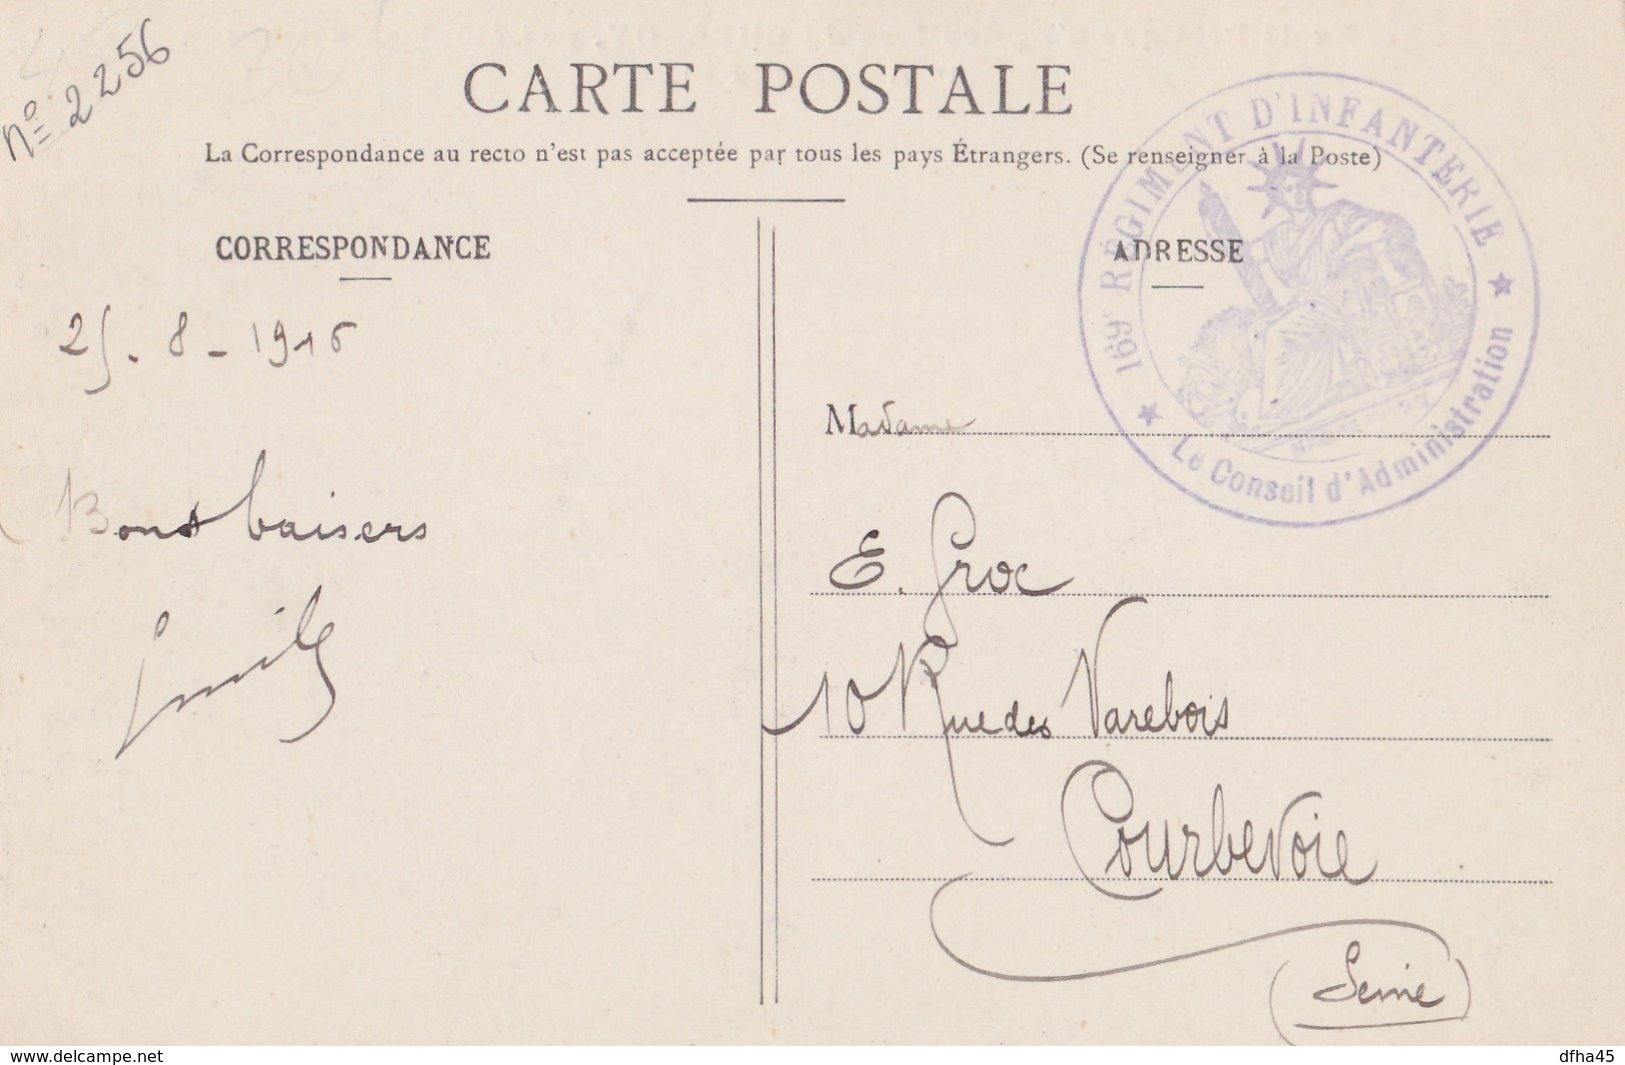 nº 2256
CARTE POSTALE
La Correspondance au recto n'est pas acceptée par tous les pays Étrangers. (Se renseigner à la Poste)
CORRESPONDANCE
25-8-1916
Bons baisers
Emile
ADRESSE
169e RÉGIMENT D'INFANTERIE
Le Conseil d'Administration
Madame
E. Groc
10 Rue des Varebois
Courbevoie
(Seine)
www.delcampe.net
dfha45